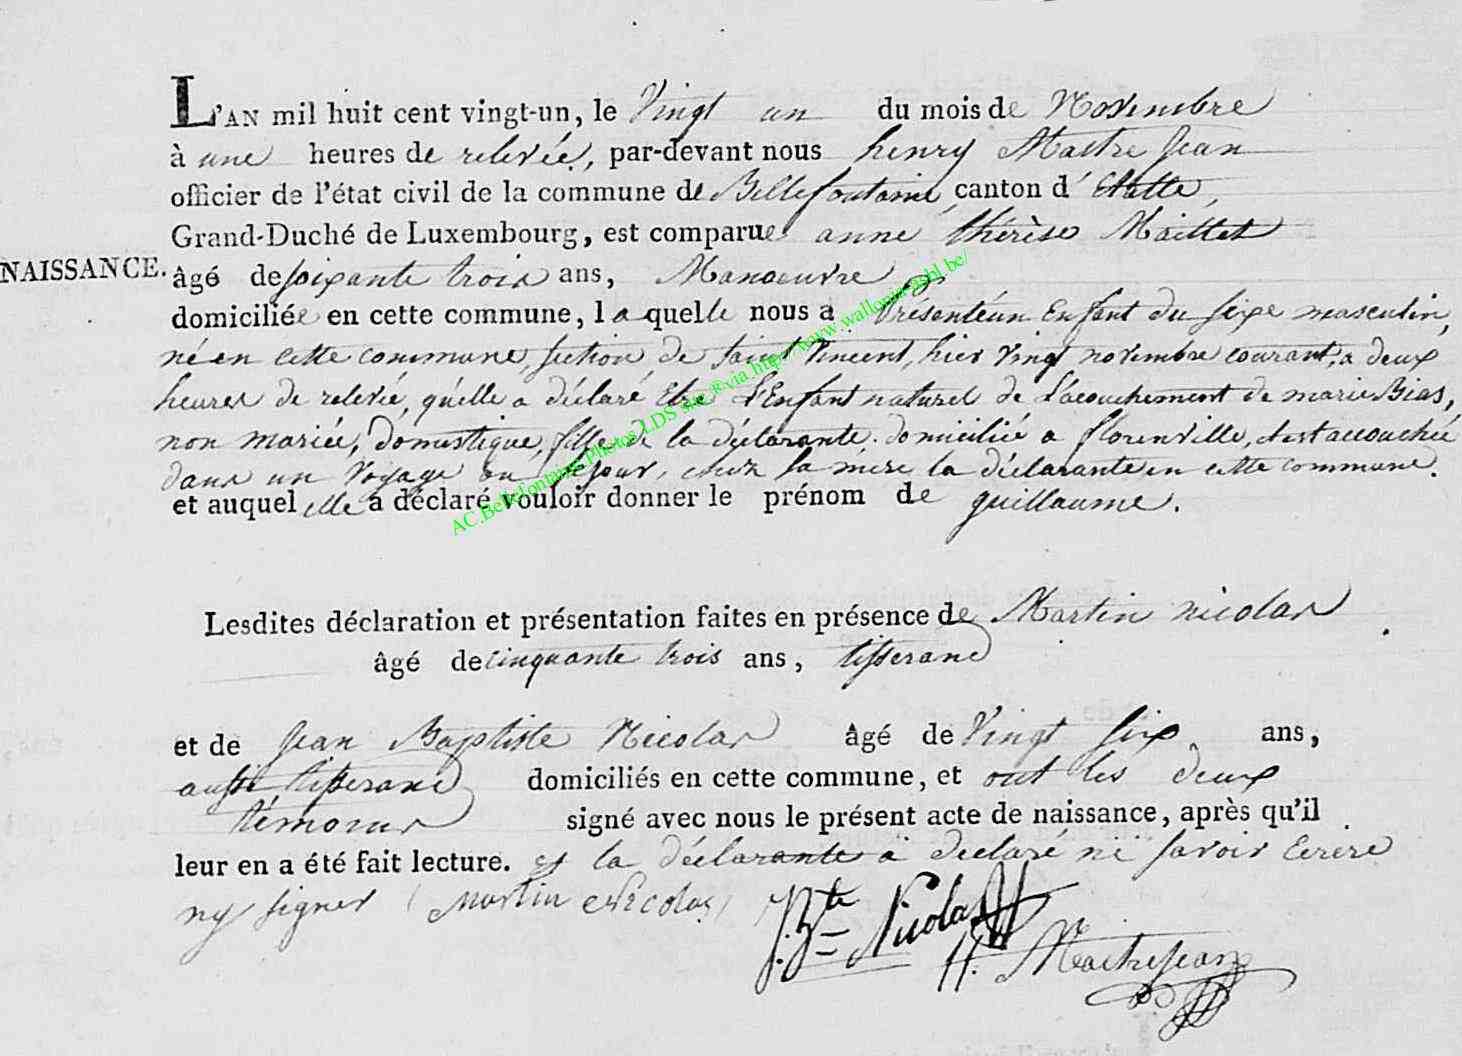 L'AN mil huit cent vingt-un, le Vingt un du mois de Novembre
à une heures de relevée, par-devant nous henry Maitre Jean
officier de l'état civil de la commune de Bellefontaine, canton d'Etalle,
Grand-Duché de Luxembourg, est comparue anne thérèse Maillet
NAISSANCE. âgé de soixante trois ans, Manoeuvre
domiciliée en cette commune, laquelle nous a Présenté un Enfant du sexe masculin,
né en cette commune, section de saint Vincent, hier vingt novembre courant, a deux
heures de relevée, qu'elle a déclaré Etre l'Enfant naturel de l'acouchement de marie Bias,
non mariée, Domestique, fille de la déclarante. domicilié a florenville, et est accouchée
dans un Voyage ou séjour, chez sa mère la déclarante en cette commune.
et auquel elle a déclaré vouloir donner le prénom de guillaume.
AC.Bellefontaine Photos LDS via http://www.wallonia-asbl.be/
Lesdites déclaration et présentation faites en présence de Martin nicolas
âgé de cinquante trois ans, tisserand
et de Jean Baptiste Nicolas âgé de Vingt six ans,
aussi tisserand domiciliés en cette commune, et ont les deux
témoins signé avec nous le présent acte de naissance, après qu'il
leur en a été fait lecture. et la déclarante a déclaré ni savoir Ecrire
ny signer Martin Nicolas J. Bte Nicolas
H. Maitrejean